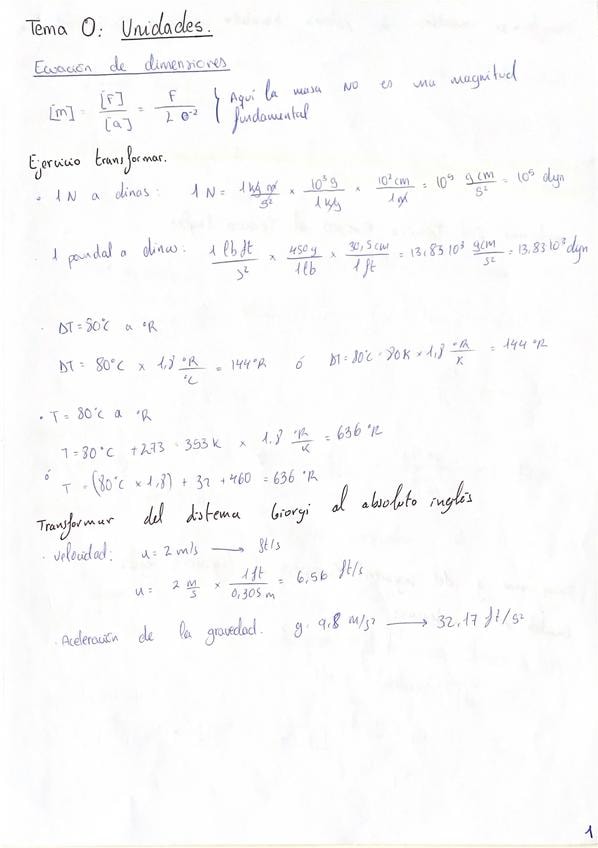 Tema 0: Unidades.
Ecuación de dimensiones
[m] = [F] / [a] = F / L θ^-2 } Aquí la masa NO es una magnitud fundamental
Ejercicio transformar.
• 1 N a dinas: 1 N = 1 kg m / s² × 10³ g / 1 kg × 10² cm / 1 m = 10⁵ g cm / s² = 10⁵ dyn
· 1 poundal a dinas: 1 lb ft / s² × 450 g / 1 lb × 30,5 cm / 1 ft = 13,83 10³ g cm / s² = 13,83 10³ dyn
· ΔT = 80°C a °R
ΔT = 80°C × 1,8 °R / °C = 144 °R ó ΔT = 80°C = 80K × 1,8 °R / K = 144 °R
• T = 80°C a °R
T = 80°C + 273 = 353 K × 1,8 °R / K = 636 °R
ó T = (80°C × 1,8) + 32 + 460 = 636 °R
Transformar del sistema Giorgi al absoluto inglés
· velocidad: u = 2 m/s → ft/s
u = 2 m / s × 1 ft / 0,305 m = 6,56 ft/s
· Aceleración de la gravedad. g = 9,8 m/s² → 32,17 ft/s²
1